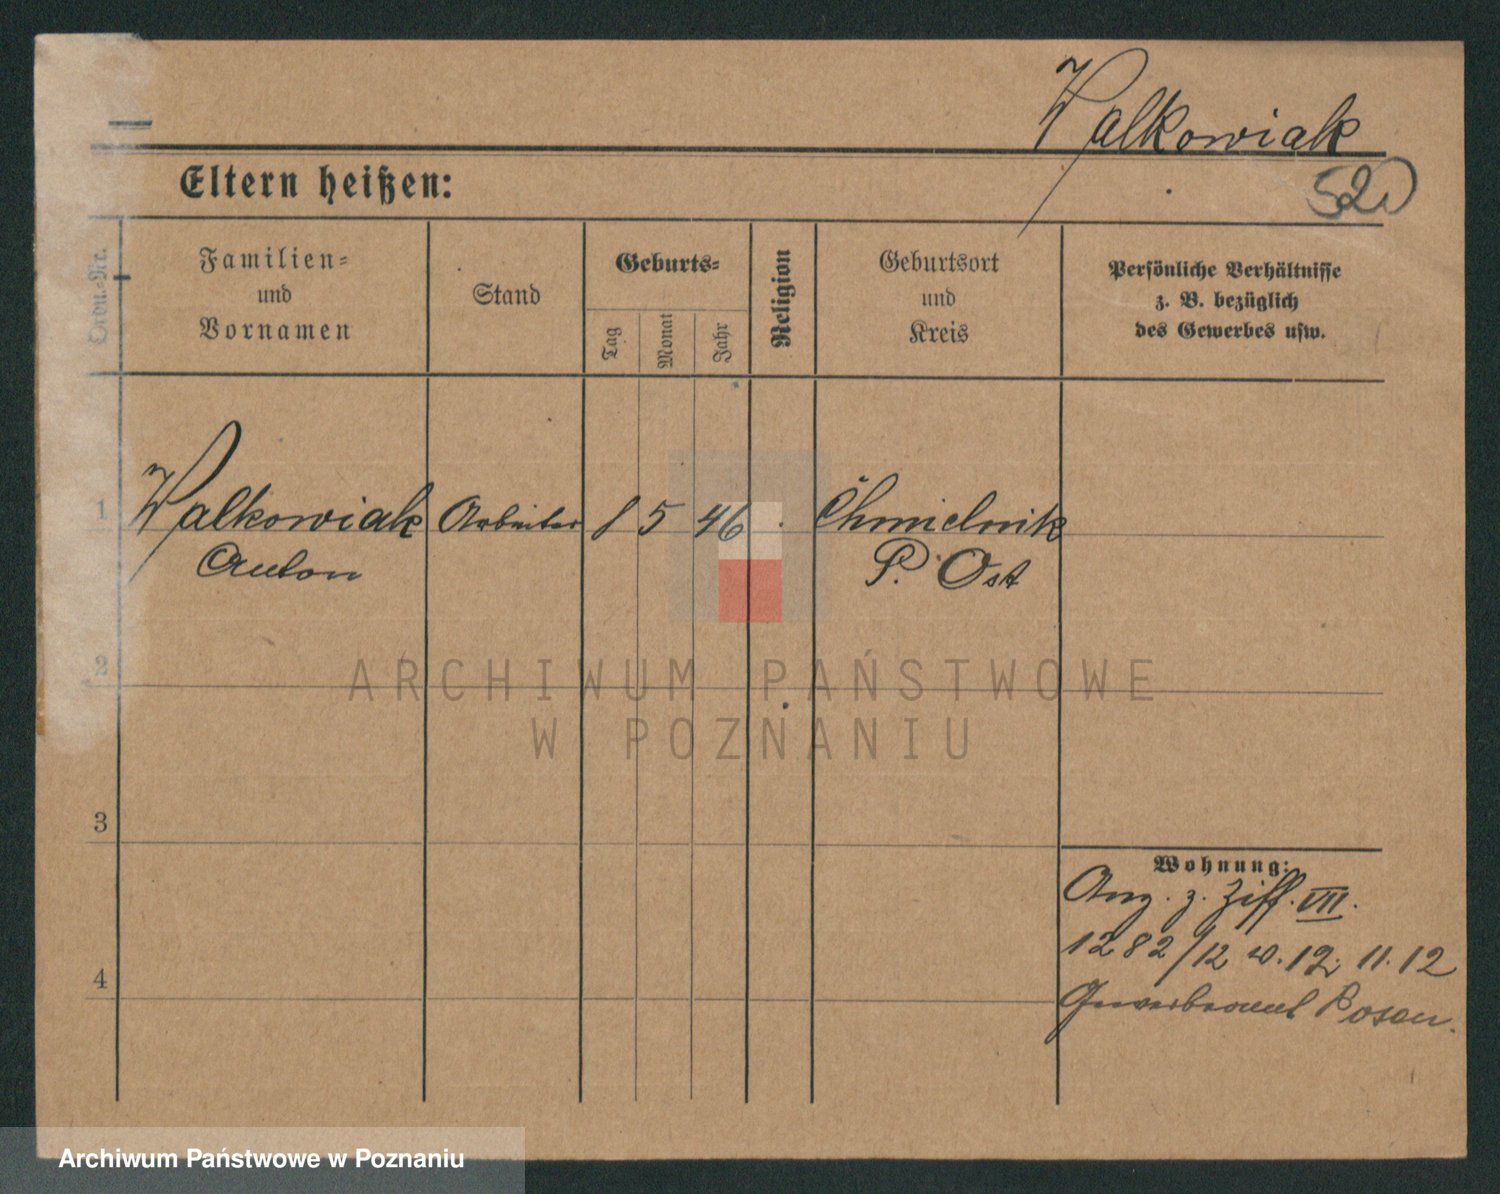 Walkowiak
Eltern heißen:
520
Ordn.-Nr.
Familien-
und
Vornamen
Stand
Geburts-
Tag
Monat
Jahr
Religion
Geburtsort
und
Kreis
Persönliche Verhältnisse
z. B. bezüglich
des Gewerbes usw.
1 Walkowiak Arbeiter 1 5 46 Chmielnik
Anton P. Ost
2
ARCHIWUM PAŃSTWOWE
W POZNANIU
3
Wohnung:
Ang. z. Ziff. VII.
1282/12 v. 19. 11. 12
4
Gewerbeamt Posen.
Archiwum Państwowe w Poznaniu